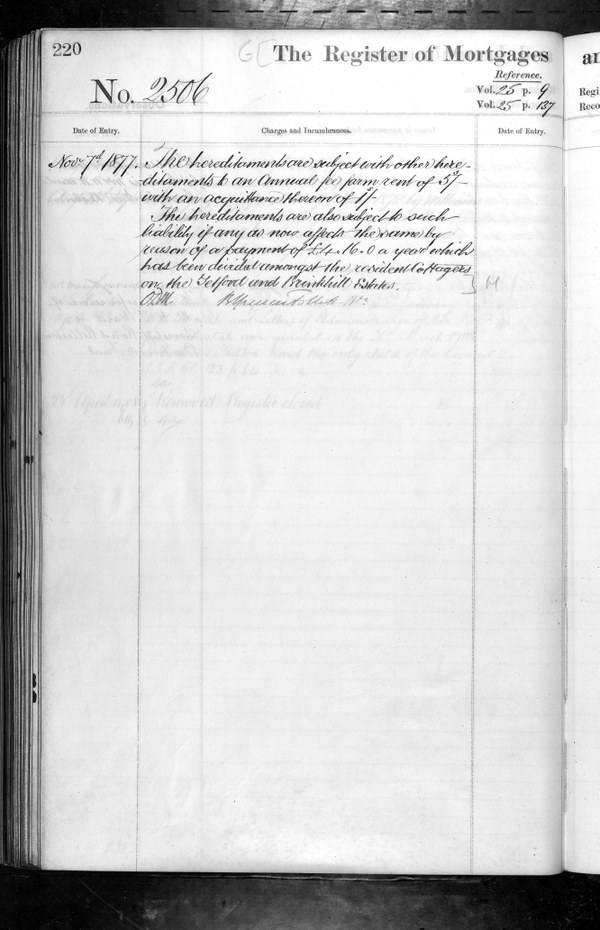 220
The Register of Mortgages
No. 2506
Reference.
Vol. 25 p. 9
Vol. 25 p. 137
Date of Entry.
Charges and Incumbrances.
Date of Entry.
Novr 7th 1877.
The hereditaments are subject with other here-
ditaments to an Annual fee farm rent of 5/-
with an acquittance thereof of 1/-
The hereditaments are also subject to such
liability if any as now affects the same by
reason of a payment of £4.16.0 a year which
has been divided amongst the resident Cottagers
on the Tetford and Brinkhill Estates.
an
Regi
Reco